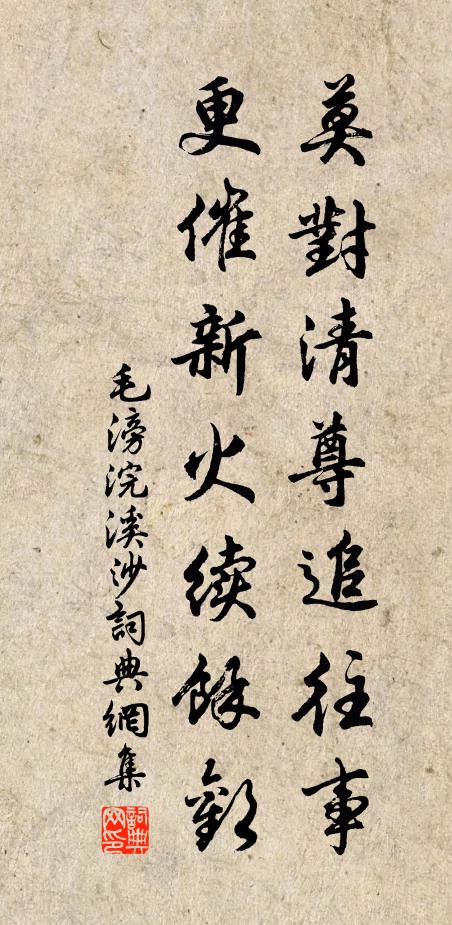 莫對清尊追往事
更催新火續餘歡
毛滂浣溪沙詞典網集
詞典网印